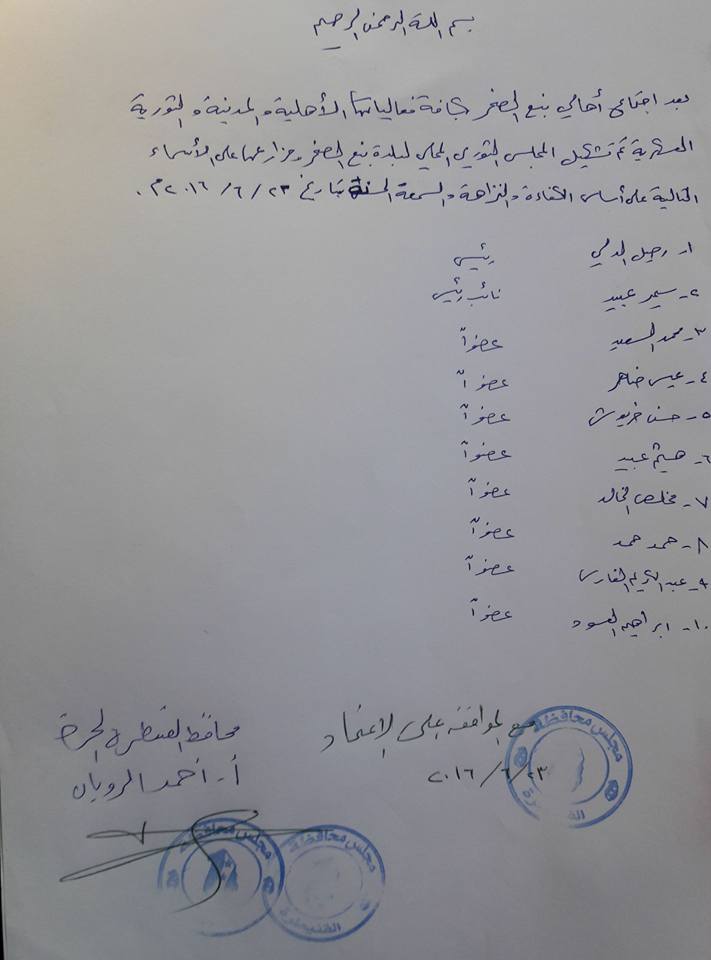 بسم الله الرحمن الرحيم
بعد اجتماع أهالي نبع الصخر بكافة فعالياتها الأهلية والمدنية والثورية
العسكرية تم تشكيل المجلس الثوري المحلي لبلدة نبع الصخر ومزارعها على الأسماء
التالية على أساس الكفاءة والنزاهة والسمعة الحسنة بتاريخ ٢٣/٦/٢٠١٦م.
١- رحيل الدلي رئيس
٢- سمير عبيد نائب رئيس
٣- محمد السعيد عضواً
٤- عيسى ضاهر عضواً
٥- حسن خربوش عضواً
٦- هيثم عبيد عضواً
٧- مخلص الخالد عضواً
٨- حمد حمد عضواً
٩- عبد الكريم الفارس عضواً
١٠- ابراهيم العسود عضواً
مع الموافقة على الاعتماد
٢٣/٦/٢٠١٦
محافظ القنيطرة الحرة
أ. أحمد الرويان
مجلس محافظة
القنيطرة
مجلس محافظة
مجلس محافظة
القنيطرة